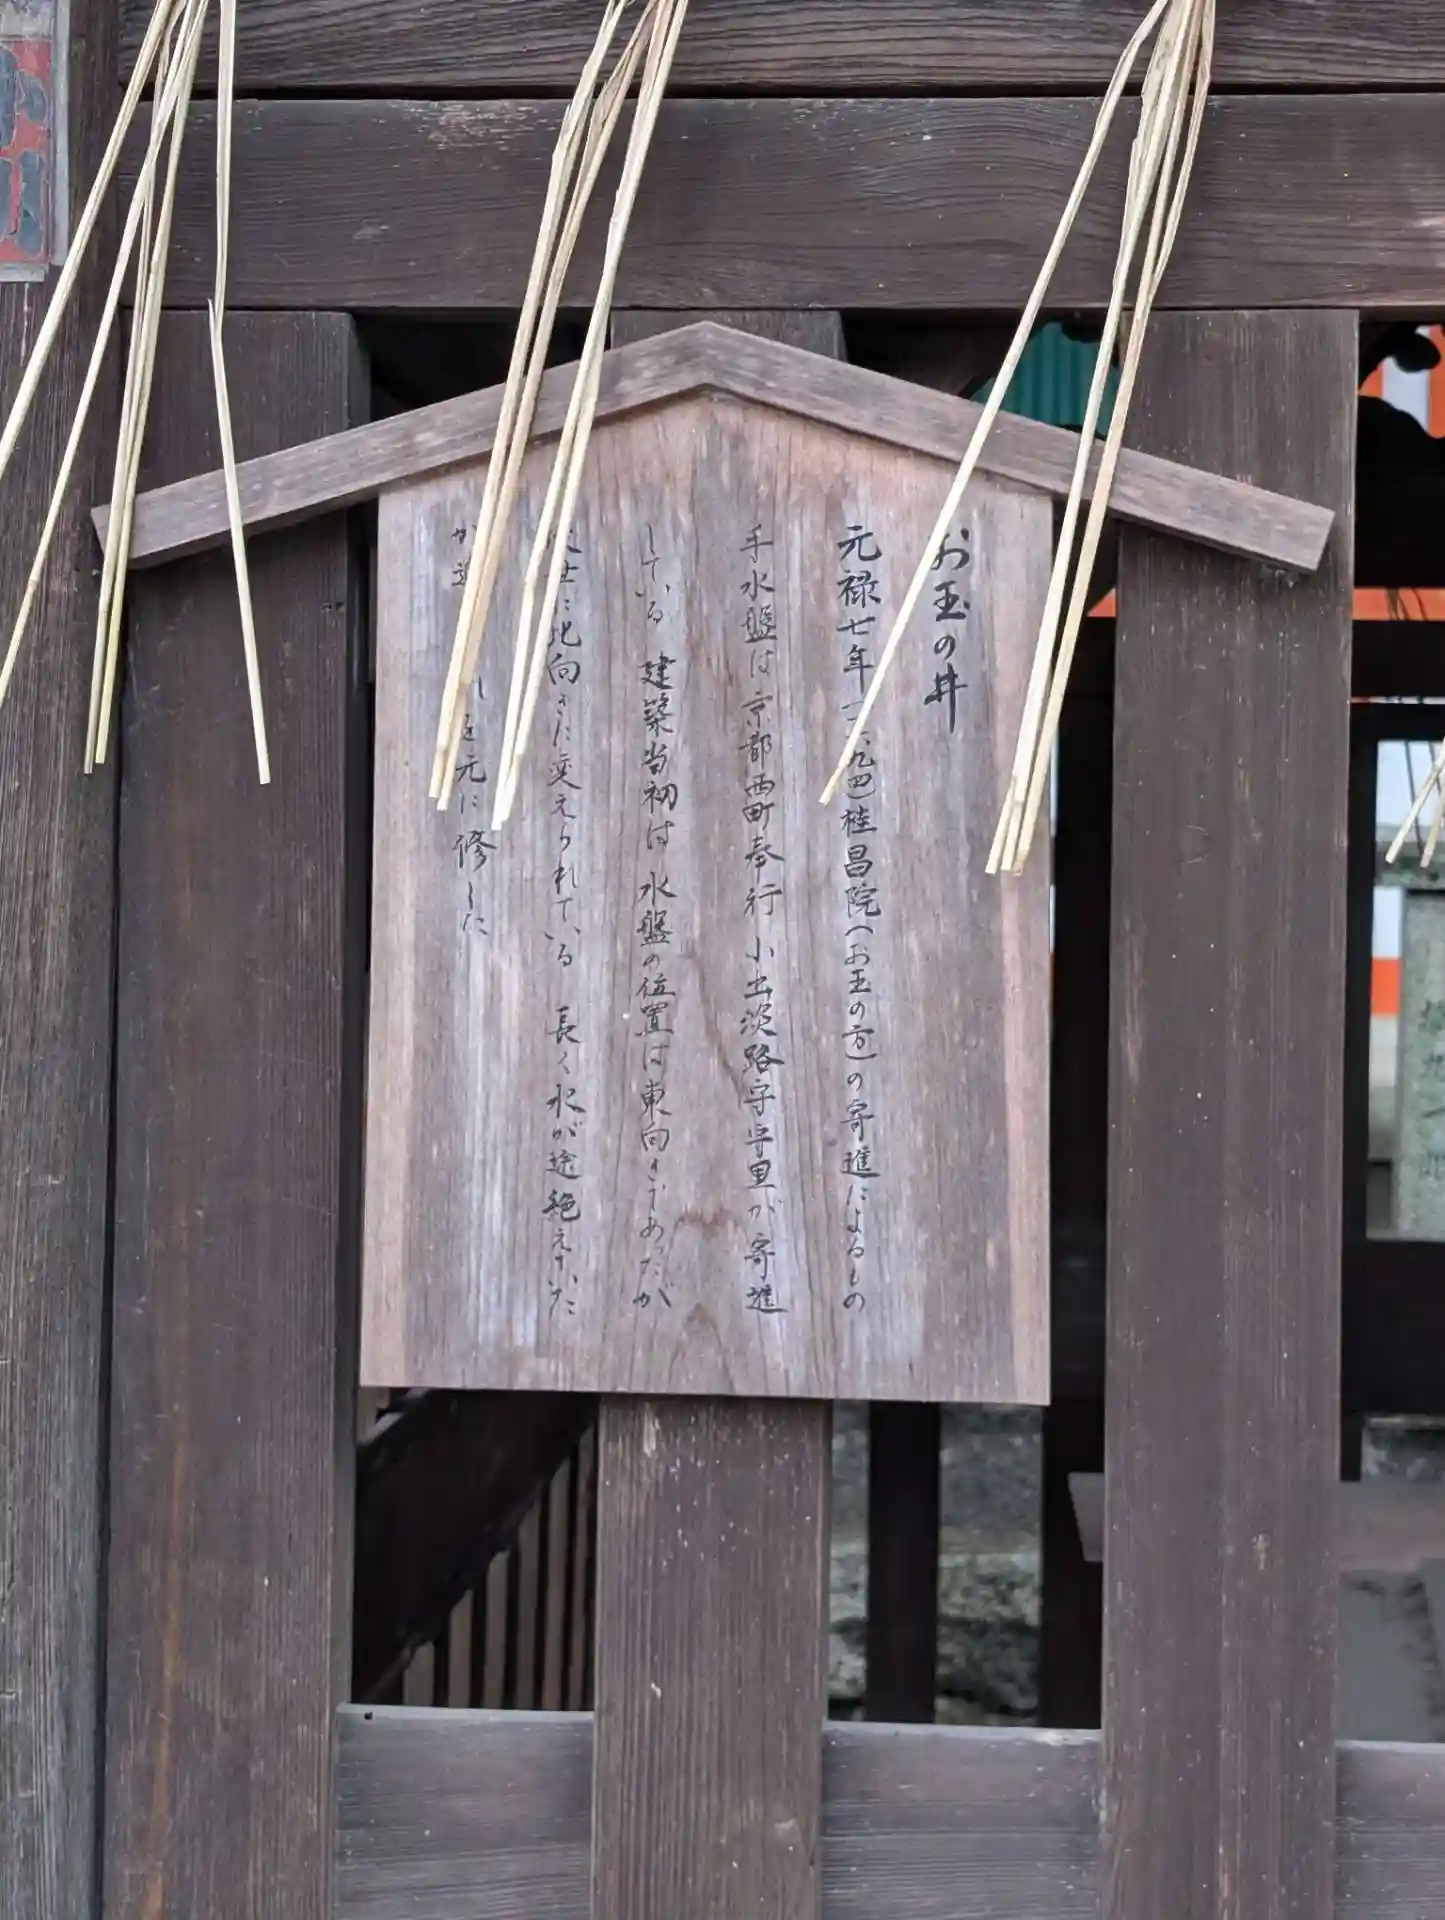 お玉の井
元禄七年(一六九四)桂昌院(お玉の方)の寄進によるもの
手水盤は京都西町奉行 小出淡路守守里が寄進
している 建築当初は 水盤の位置は東向きであったが
世に北向きに変えられている 長く水が途絶えていた
が を元に修した